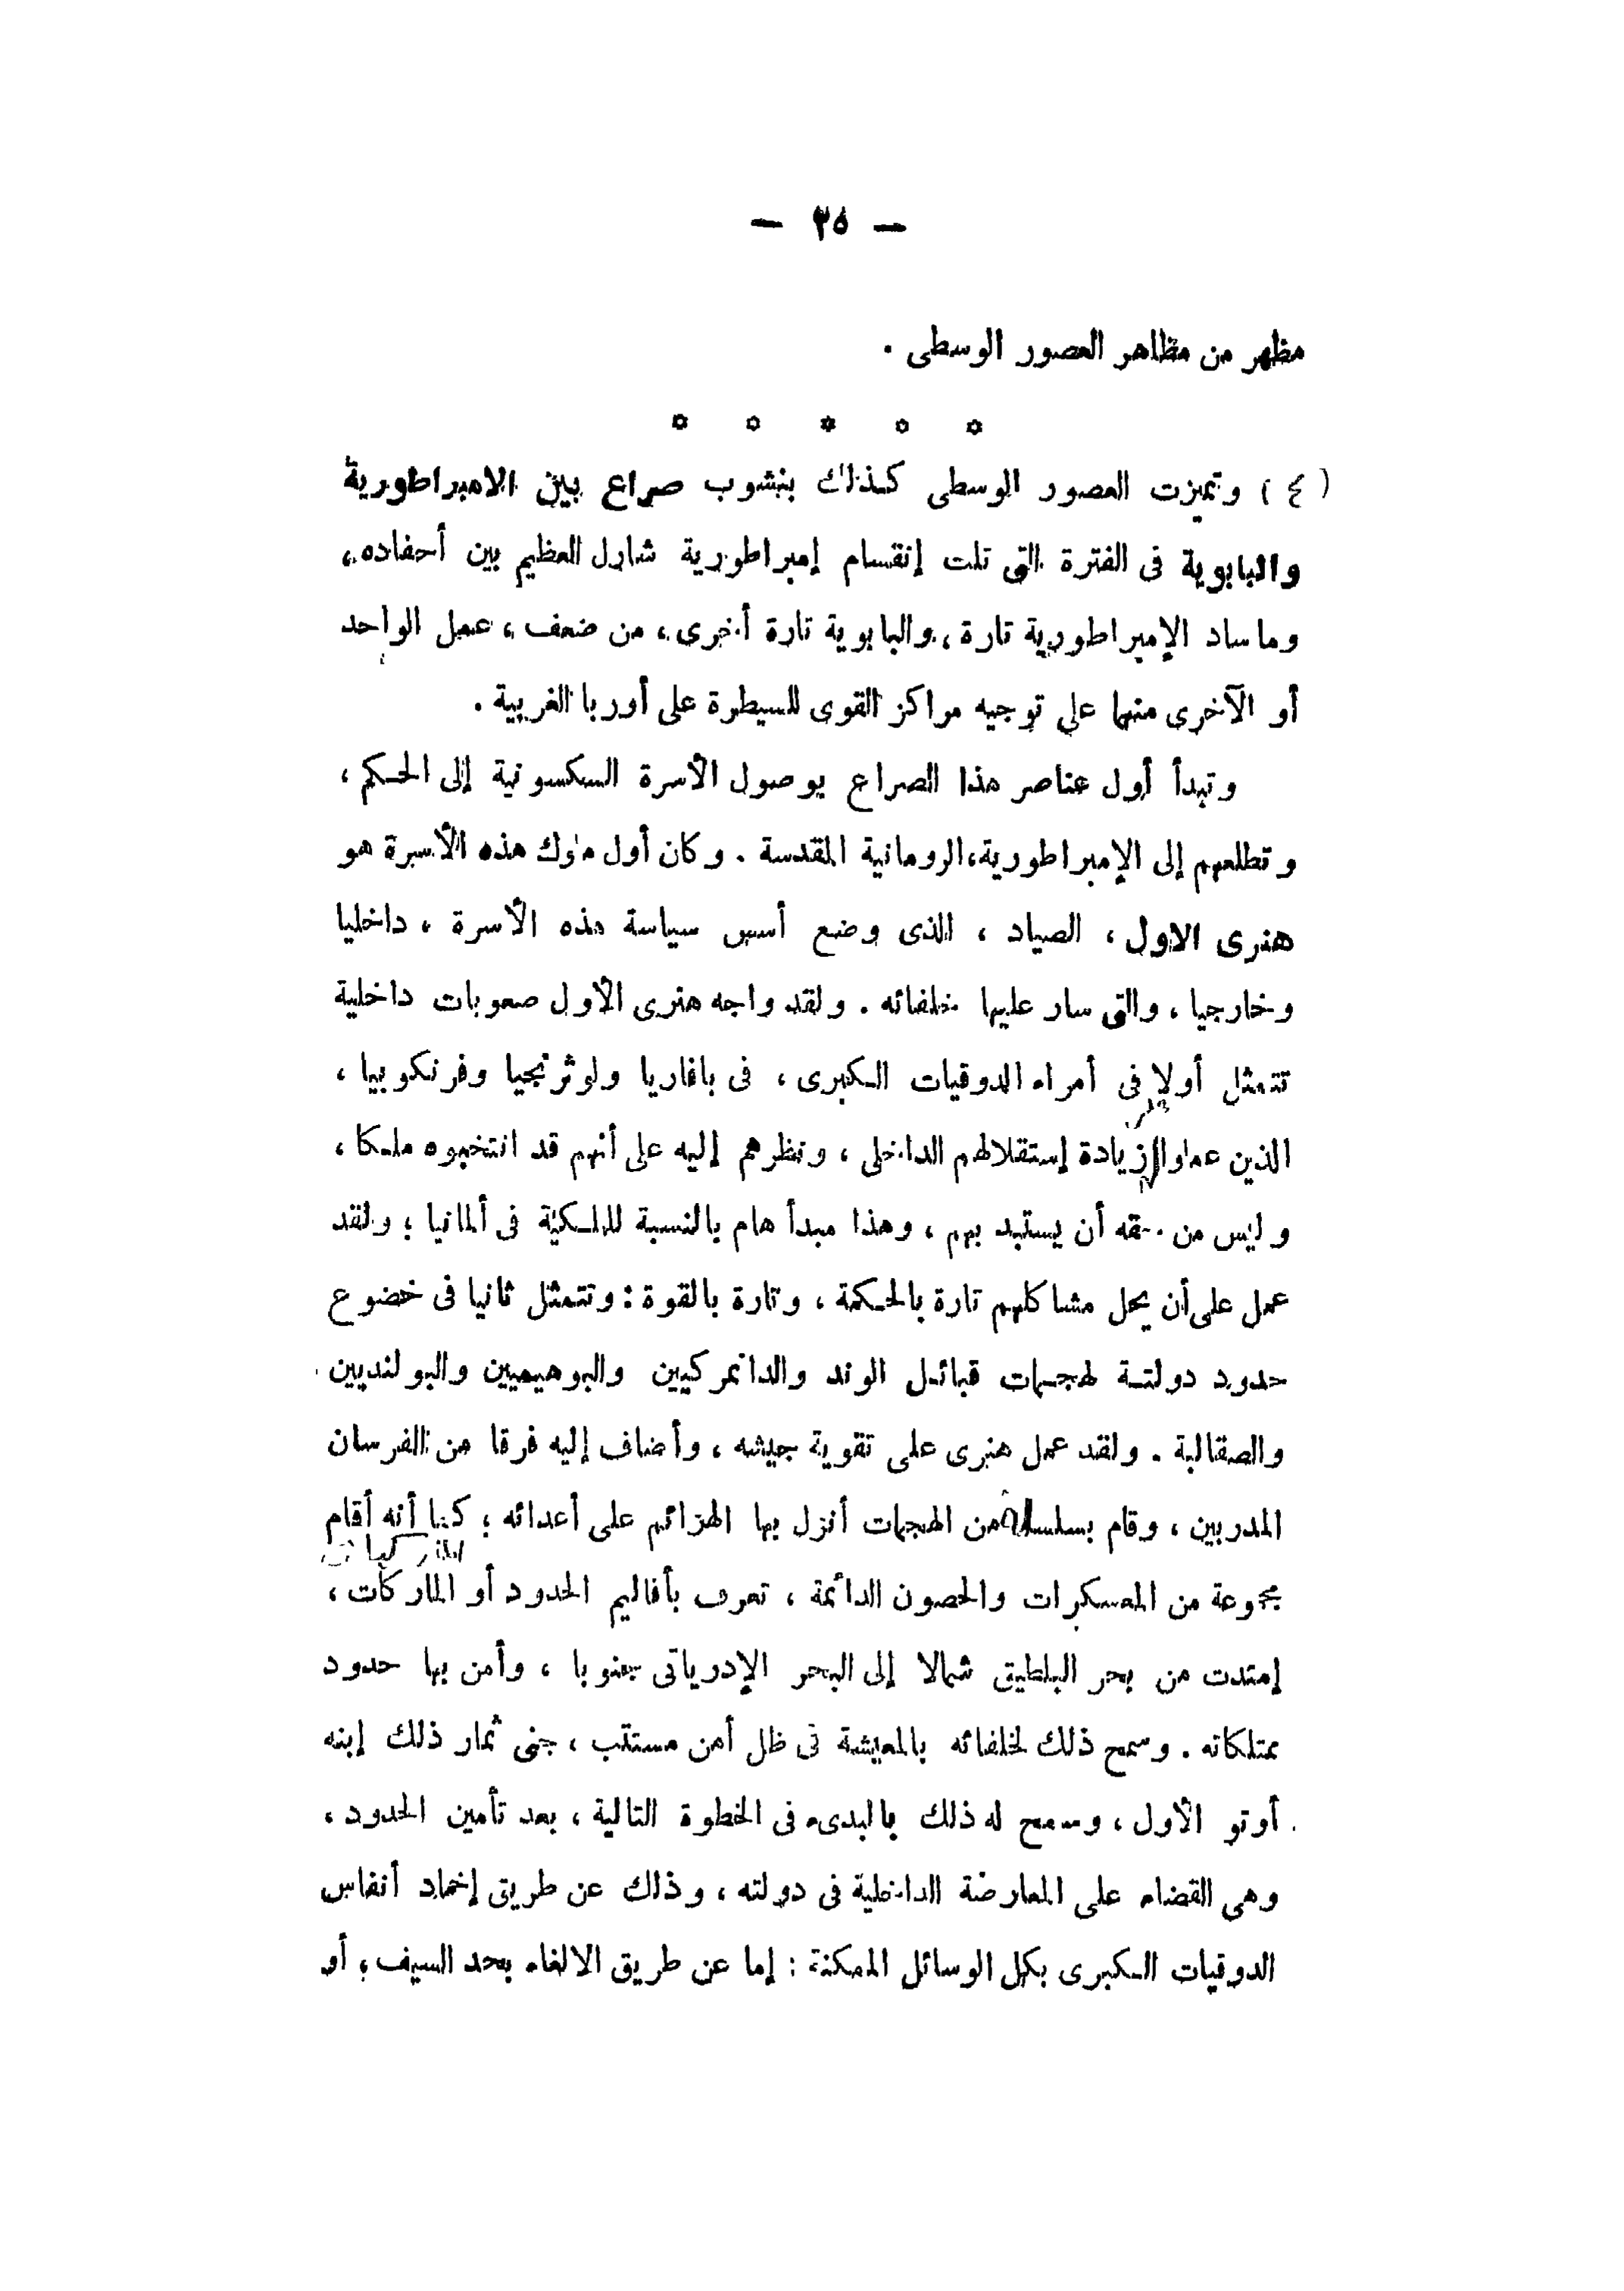 — ٢٥ —
مظهر من مظاهر العصور الوسطى .
* * * * *
( ٤ ) وتميزت العصور الوسطى كذلك بنشوب صراع بين الامبراطورية
والبابوية فى الفترة التى تلت إنقسام إمبراطورية شارل العظيم بين أحفاده ،
وما ساد الإمبراطورية تارة ، والبابوية تارة أخرى ، من ضعف ، عمل الواحد
أو الآخرى منهما على توجيه مراكز القوى للسيطرة على أوربا الغربية .
وتبدأ أول عناصر هذا الصراع بوصول الأسرة السكسونية إلى الحكم ،
وتطلعهم إلى الإمبراطورية ، الرومانية المقدسة . وكان أول ملوك هذه الأسرة هو
هنرى الاول ، الصياد ، الذى وضع أسس سياسة هذه الأسرة ، داخليا
وخارجيا ، والتى سار عليها خلفائه . ولقد واجه هنرى الأول صعوبات داخلية
تتمثل أولا فى أمراء الدوقيات الكبرى ، فى بافاريا ولوثرنجيا وفرنكوبيا ،
الذين عملوا لزيادة إستقلالهم الداخلى ، ونظرهم إليه على أنهم قد انتخبوه ملكا ،
وليس من حقه أن يستبد بهم ، وهذا مبدأ هام بالنسبة للملكية فى ألمانيا ؛ ولقد
عمل على أن يحل مشاكلهم تارة بالحكمة ، وتارة بالقوة : وتتمثل ثانيا فى خضوع
حدود دولتة لهجمات قبائل الوند والدانمركيين والبوهيميين والبولنديين
والصقالبة . ولقد عمل هنرى على تقوية جيشه ، وأضاف إليه فرقا من الفرسان
المدربين ، وقام بسلسلة من الهجمات أنزل بها الهزائم على أعدائه ؛ كما أنه أقام
مجموعة من المعسكرات والحصون الدائمة ، تعرف بأقاليم الحدود أو الماركات ،
إمتدت من بحر البلطيق شمالا إلى البحر الإدرياتى جنوبا ، وأمن بها حدود
ممتلكاته . وسمح ذلك لخلفائه بالمعيشة فى ظل أمن مستتب ، جنى ثمار ذلك إبنه
أوتو الأول ، وسمح له ذلك بالبدىء فى الخطوة التالية ، بعد تأمين الحدود ،
وهى القضاء على المعارضة الداخلية فى دولته ، وذلك عن طريق إخماد أنفاس
الدوقيات الكبرى بكل الوسائل الممكنة : إما عن طريق الالغاء بحد السيف ، أو